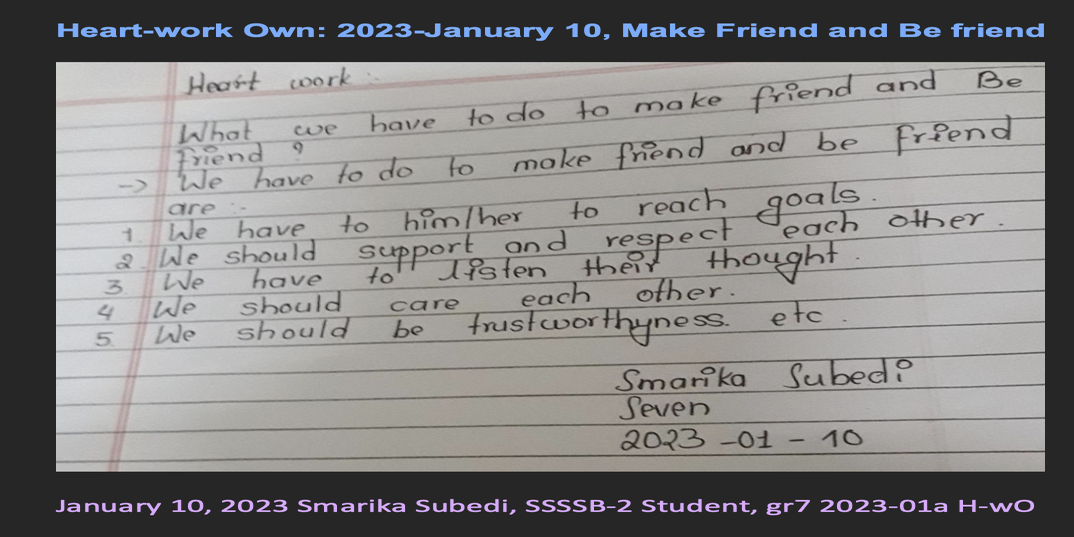 Heart-work Own: 2023-January 10, Make Friend and Be friend
Heart work :
What we have to do to make friend and Be
friend ?
-> We have to do to make friend and be friend
are :-
1. We have to him/her to reach goals.
2. We should support and respect each other.
3. We have to listen their thought.
4 We should care each other.
5. We should be trustworthyness. etc.
Smarika Subedi
Seven
2023 -01 - 10
January 10, 2023 Smarika Subedi, SSSSB-2 Student, gr7 2023-01a H-wO